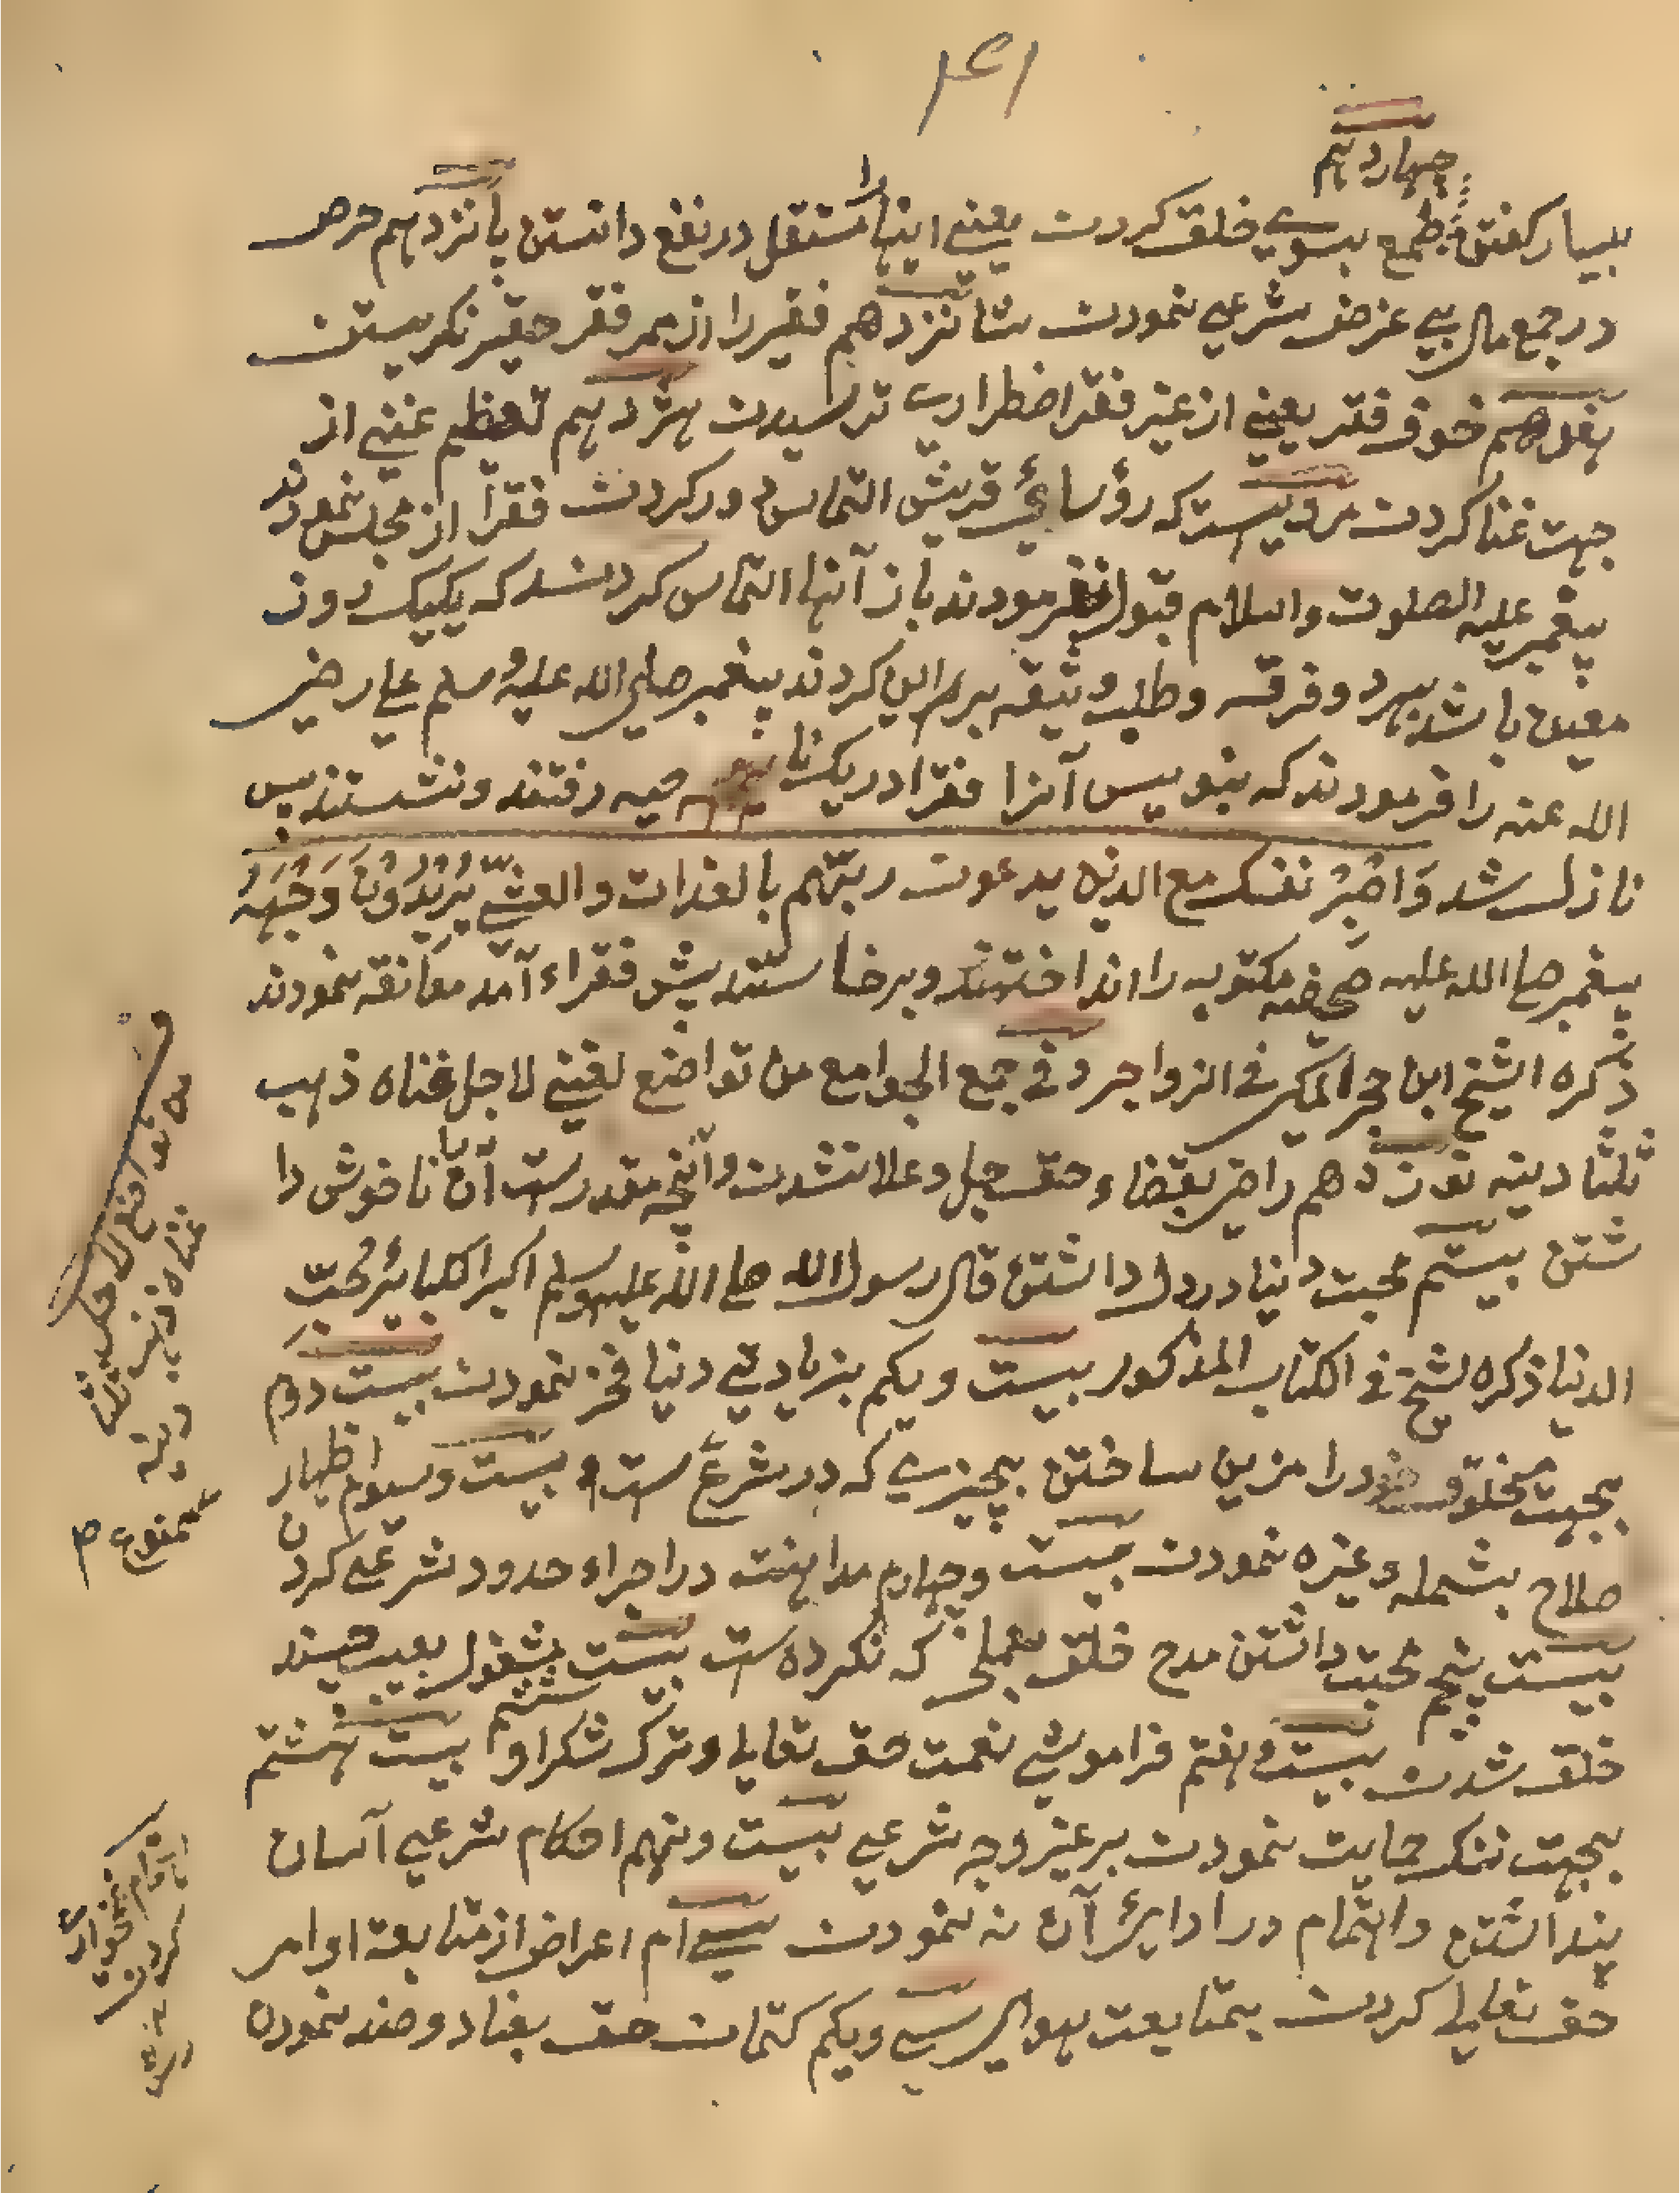 چهاردهم
بسیار گفتن طمع بسوی خلق کردن یعنے اینها را مستقل در نفع دانستن پانزدهم حرص
در جمع مال بی غرض شرعی نمودن شانزدهم فقیر را از ممر فقر حقیر نکریستن
هفدهم خوف فقر یعنے از غیر فقر اضطراری ترسیدن هژدهم تعظیم غنے از
جهت غنا کردن مرویست که رؤسائ قریش التماس دور کردن فقرا از مجلس نمودند
پیغمبر علیه الصلوت والسلام قبول نفرمودند باز آنها التماس کردند که یکیک روز
معین باشد بهر دو فرقه وطلب وثیقه بر این کردند پیغمبر صلی الله علیه وسلم علی رضی
الله عنه را فرمودند که بنویس آنرا فقرا در یک ناحیه رفتند ونشستند پس
نازل شد وَاصْبِرْ نفسک مع الذین یدعون ربّهم بالغدات والعشیّ یُرِیْدُوْنَ وَجْهَهُ
پیغمبر صلی الله علیه صحیفه مکتوبه را انداختند وبرخاستند پیش فقراء آمده معانقه نمودند
ذکره الشیخ ابن حجر المکی فی الزواجر وفی جمع الجوامع من تواضع لغنے لاجل غناه ذهب
ثلثا دینه نوزدهم راضی بقضاء حق جل وعلا نشدن وآنچه مقدرست آن ناخوش دا
شتن بیستم محبت دنیا در دل داشتن قال رسول الله صلی الله علیه وسلم اکبر الکبائر حُبّ
الدنیا ذکره الشیخ فی الکتاب المذکور بیست ویکم بزیادتی دنیا فخر نمودن بیست دوم
بجهت مخلوق خود را مزین ساختن بچیزی که در شرع ست بیست وسیوم اظهار
صلاح بشمله وغیره نمودن بیست وچهارم مداهنت در اجراء حدود شرعی کردن
بیست پنجم محبت داشتن مدح خلق بعملی که نکرده ست بیست ششم مشغول بعیب
خلق شدن بیست وهفتم فراموشی نعمت حق تعالی وترک شکر او بیست هشتم
بجهت ننک حمایت نمودن بر غیر وجه شرعی بیست ونهم احکام شرعی آسان
پنداشتن واهتمام در ادا آن نه نمودن سی ام اعراض از متابعة اوامر
حق تعالی کردن بمتابعت هوا سی ویکم کتمان حق بعناد وضد نموده
ممنوع ۲